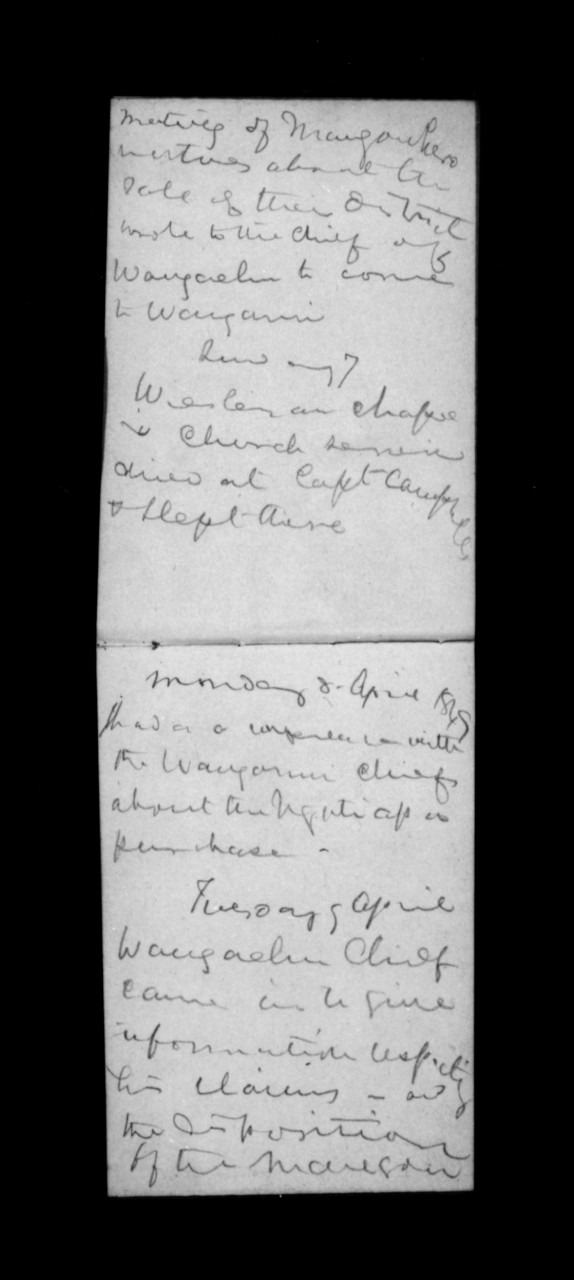 meeting of Mangowhero
natives about the
Sale of their District
wrote to the chief of
Wangaehu to come
to Wanganui
Sunday 7
Wesleyan Chapel
& Church service
dined at Capt Campbells
& Slept there
Monday 8 April 1849
had a conference with
the Wanganui Chiefs
about the Ngatiapa
purchase -
Tuesday 9 April
Wangaehu Chief
came in to give
information respecting
his claims - and
the disposition
of the Mangow